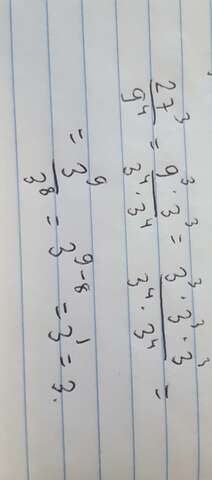 27³/9⁴ = 9³·3³/3⁴·3⁴ = 3³·3³·3³/3⁴·3⁴ =
= 3⁹/3⁸ = 3⁹⁻⁸ = 3¹ = 3.